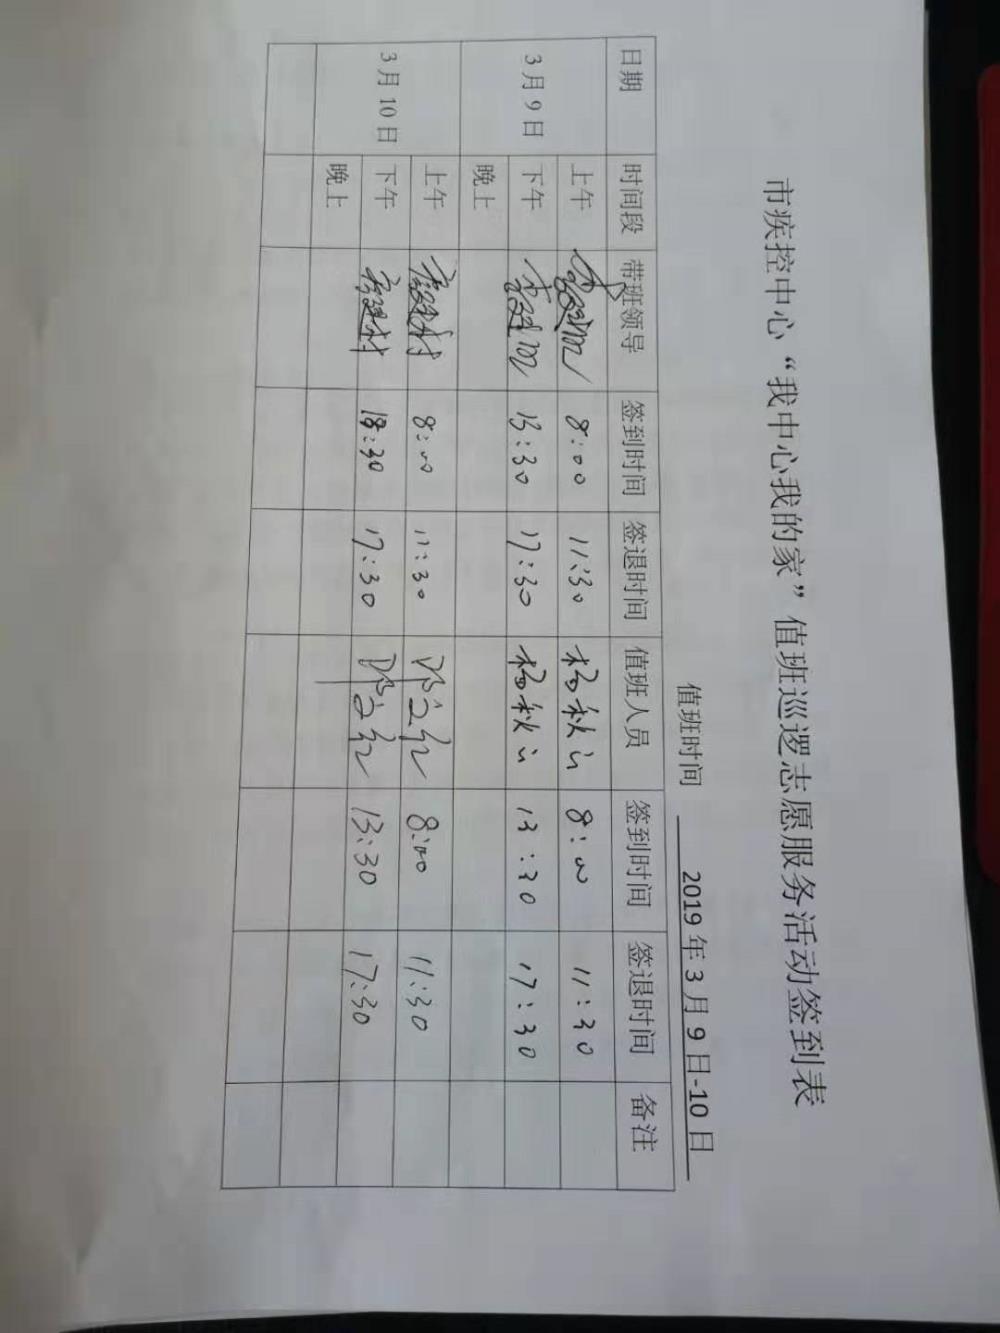 市疾控中心“我中心我的家”值班巡逻志愿服务活动签到表
值班时间 2019 年 3 月 9 日-10 日
日期 时间段 带班领导 签到时间 签退时间 值班人员 签到时间 签退时间 备注
3 月 9 日 上午 8:00 11:30 杨秋 8:00 11:30
下午 13:30 17:30 杨秋 13:30 17:30
晚上
3 月 10 日 上午 8:00 11:30 8:00 11:30
下午 17:30 13:30 17:30
晚上